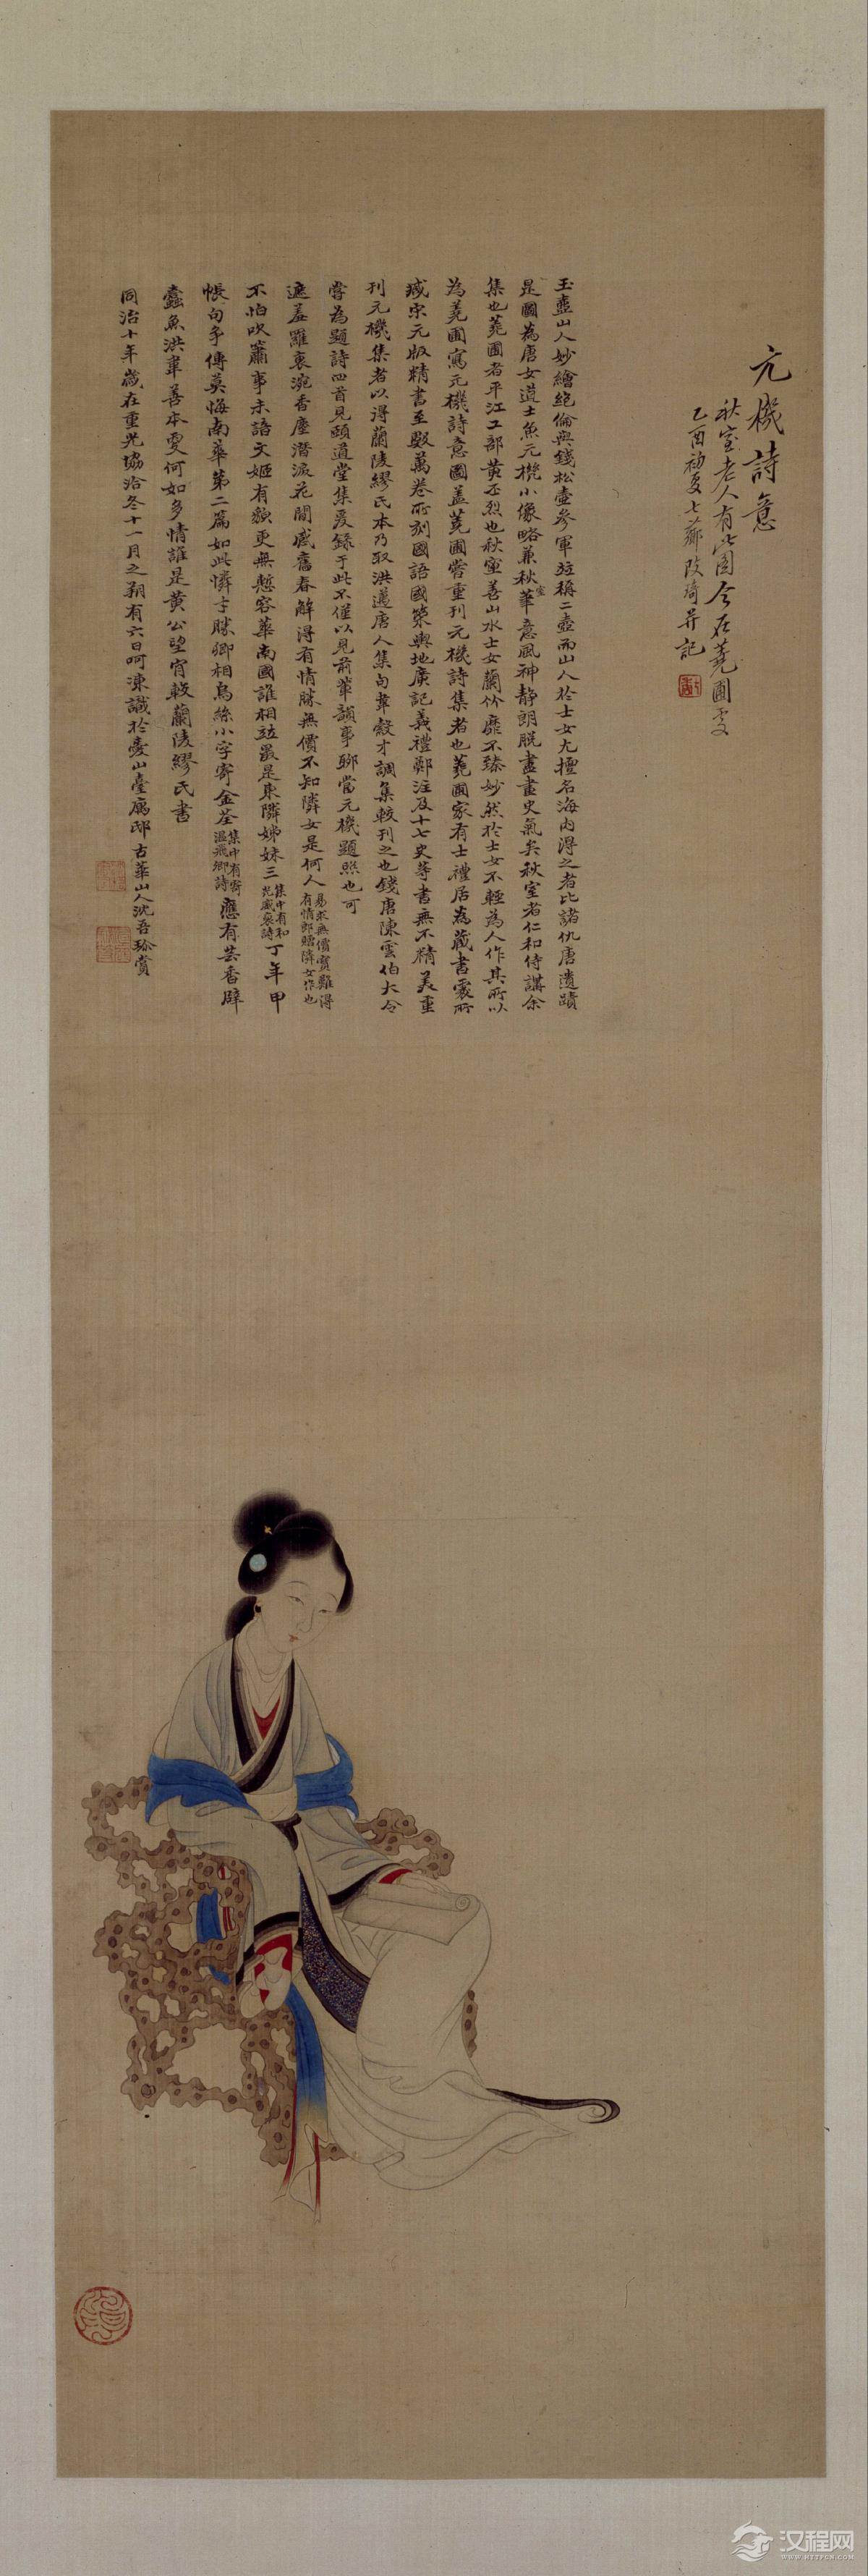 元機詩意
秋室老人有此圖今在蕘圃處
乙酉初夏七薌改琦并記
玉壺山人妙繪絕倫與錢松壺參軍竝稱二壺而山人於士女尤擅名海內得之者比諸仇唐遺蹟
是圖為唐女道士魚元機小像略兼秋室華意風神靜朗脫盡畫史氣矣秋室者仁和侍講余
集也蕘圃者平江工部黃丕烈也秋室善山水士女蘭竹靡不臻妙然於士女不輕為人作其所以
為蕘圃寫元機詩意圖蓋蕘圃嘗重刊元機詩集者也蕘圃家有士禮居為藏書處所
臧宋元版精書至數萬卷所刻國語國策輿地廣記義禮鄭注及十七史等書無不精美重
刊元機集者以得蘭陵繆氏本乃取洪邁唐人集句韋縠才調集較刊之也錢唐陳雲伯大令
嘗為題詩四首見頤道堂集爰錄于此不僅以見前輩韻事聊當元機題照也可
遮羞羅裏涴香塵潛淚花間感舊春解得有情勝無價不知隣女是何人易求無價寶難得有情郎贈隣女作也
不怕吹簫事未諳文姬有貌更無慙容華南國誰相竝最是東隣姊妹三集中有和光威裒詩丁年甲
帳句爭傳莫悔南華第二篇如此憐才勝卿相烏絲小字寄金荃集中有寄溫飛卿詩應有芸香辟
蠹魚洪韋善本更何如多情誰是黃公望宵較蘭陵繆氏書
同治十年歲在重光協洽冬十一月之朔有六日呵凍識於臺山臺廨邸古華山人沈吾珍賞
汉程网
WWW.HTTPCN.COM